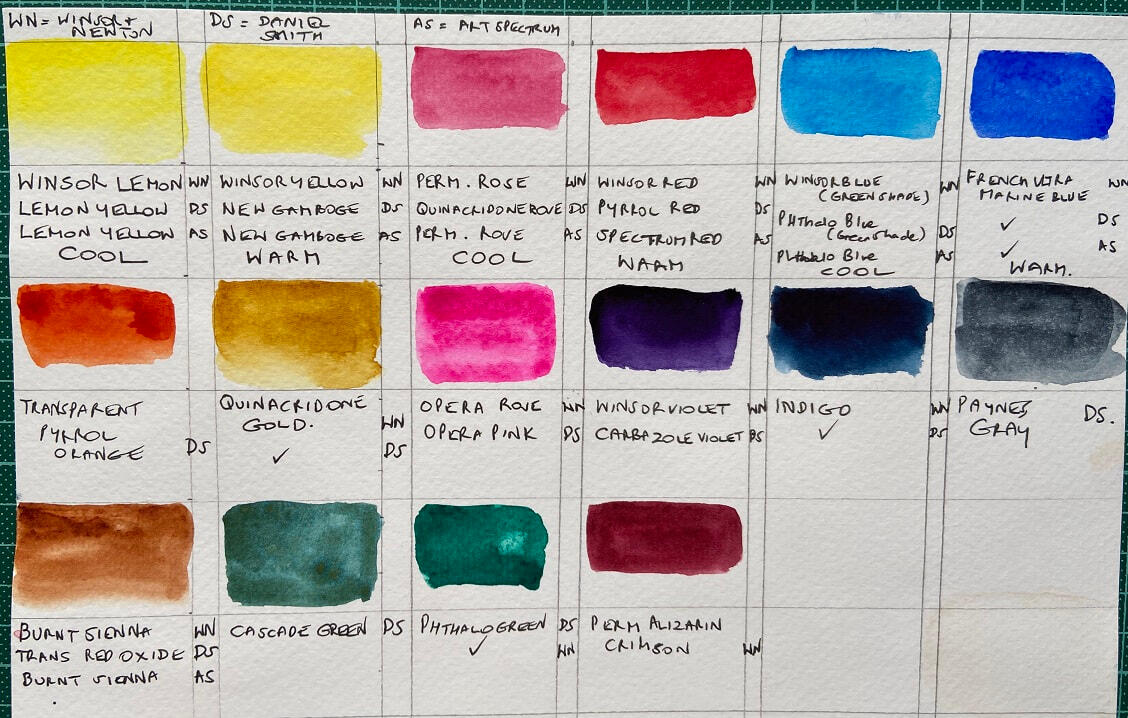 WN = WINSOR + NEWTON
DS = DANIEL SMITH
AS = ART SPECTRUM
WINSOR LEMON WN
LEMON YELLOW DS
LEMON YELLOW AS
COOL
WINSOR YELLOW WN
NEW GAMBOGE DS
NEW GAMBOGE AS
WARM
PERM. ROSE WN
QUINACRIDONE ROSE DS
PERM. ROSE AS
COOL
WINSOR RED WN
PYRROL RED DS
SPECTRUM RED AS
WARM
WINSOR BLUE
(GREEN SHADE) WN
PHthalo Blue
(Green shade) DS
Phthalo Blue AS
COOL
FRENCH ULTRA WN
MARINE BLUE
✓ DS
✓ AS
WARM.
TRANSPARENT
PYRROL
ORANGE DS
QUINACRIDONE
GOLD. WN
✓ DS
OPERA ROSE WN
OPERA PINK DS
WINSOR VIOLET WN
CARBAZOLE VIOLET DS
INDIGO WN
✓ DS
PAYNES DS.
GRAY
BURNT SIENNA WN
TRANS RED OXIDE DS
BURNT SIENNA AS
CASCADE GREEN DS
PHTHALO GREEN DS
✓ WN
PERM ALIZARIN
CRIMSON WN